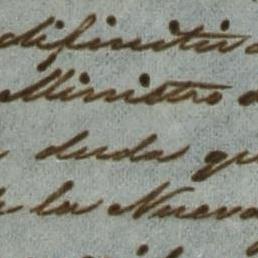 difinitiv
Ministro
duda qu
de la Nueva